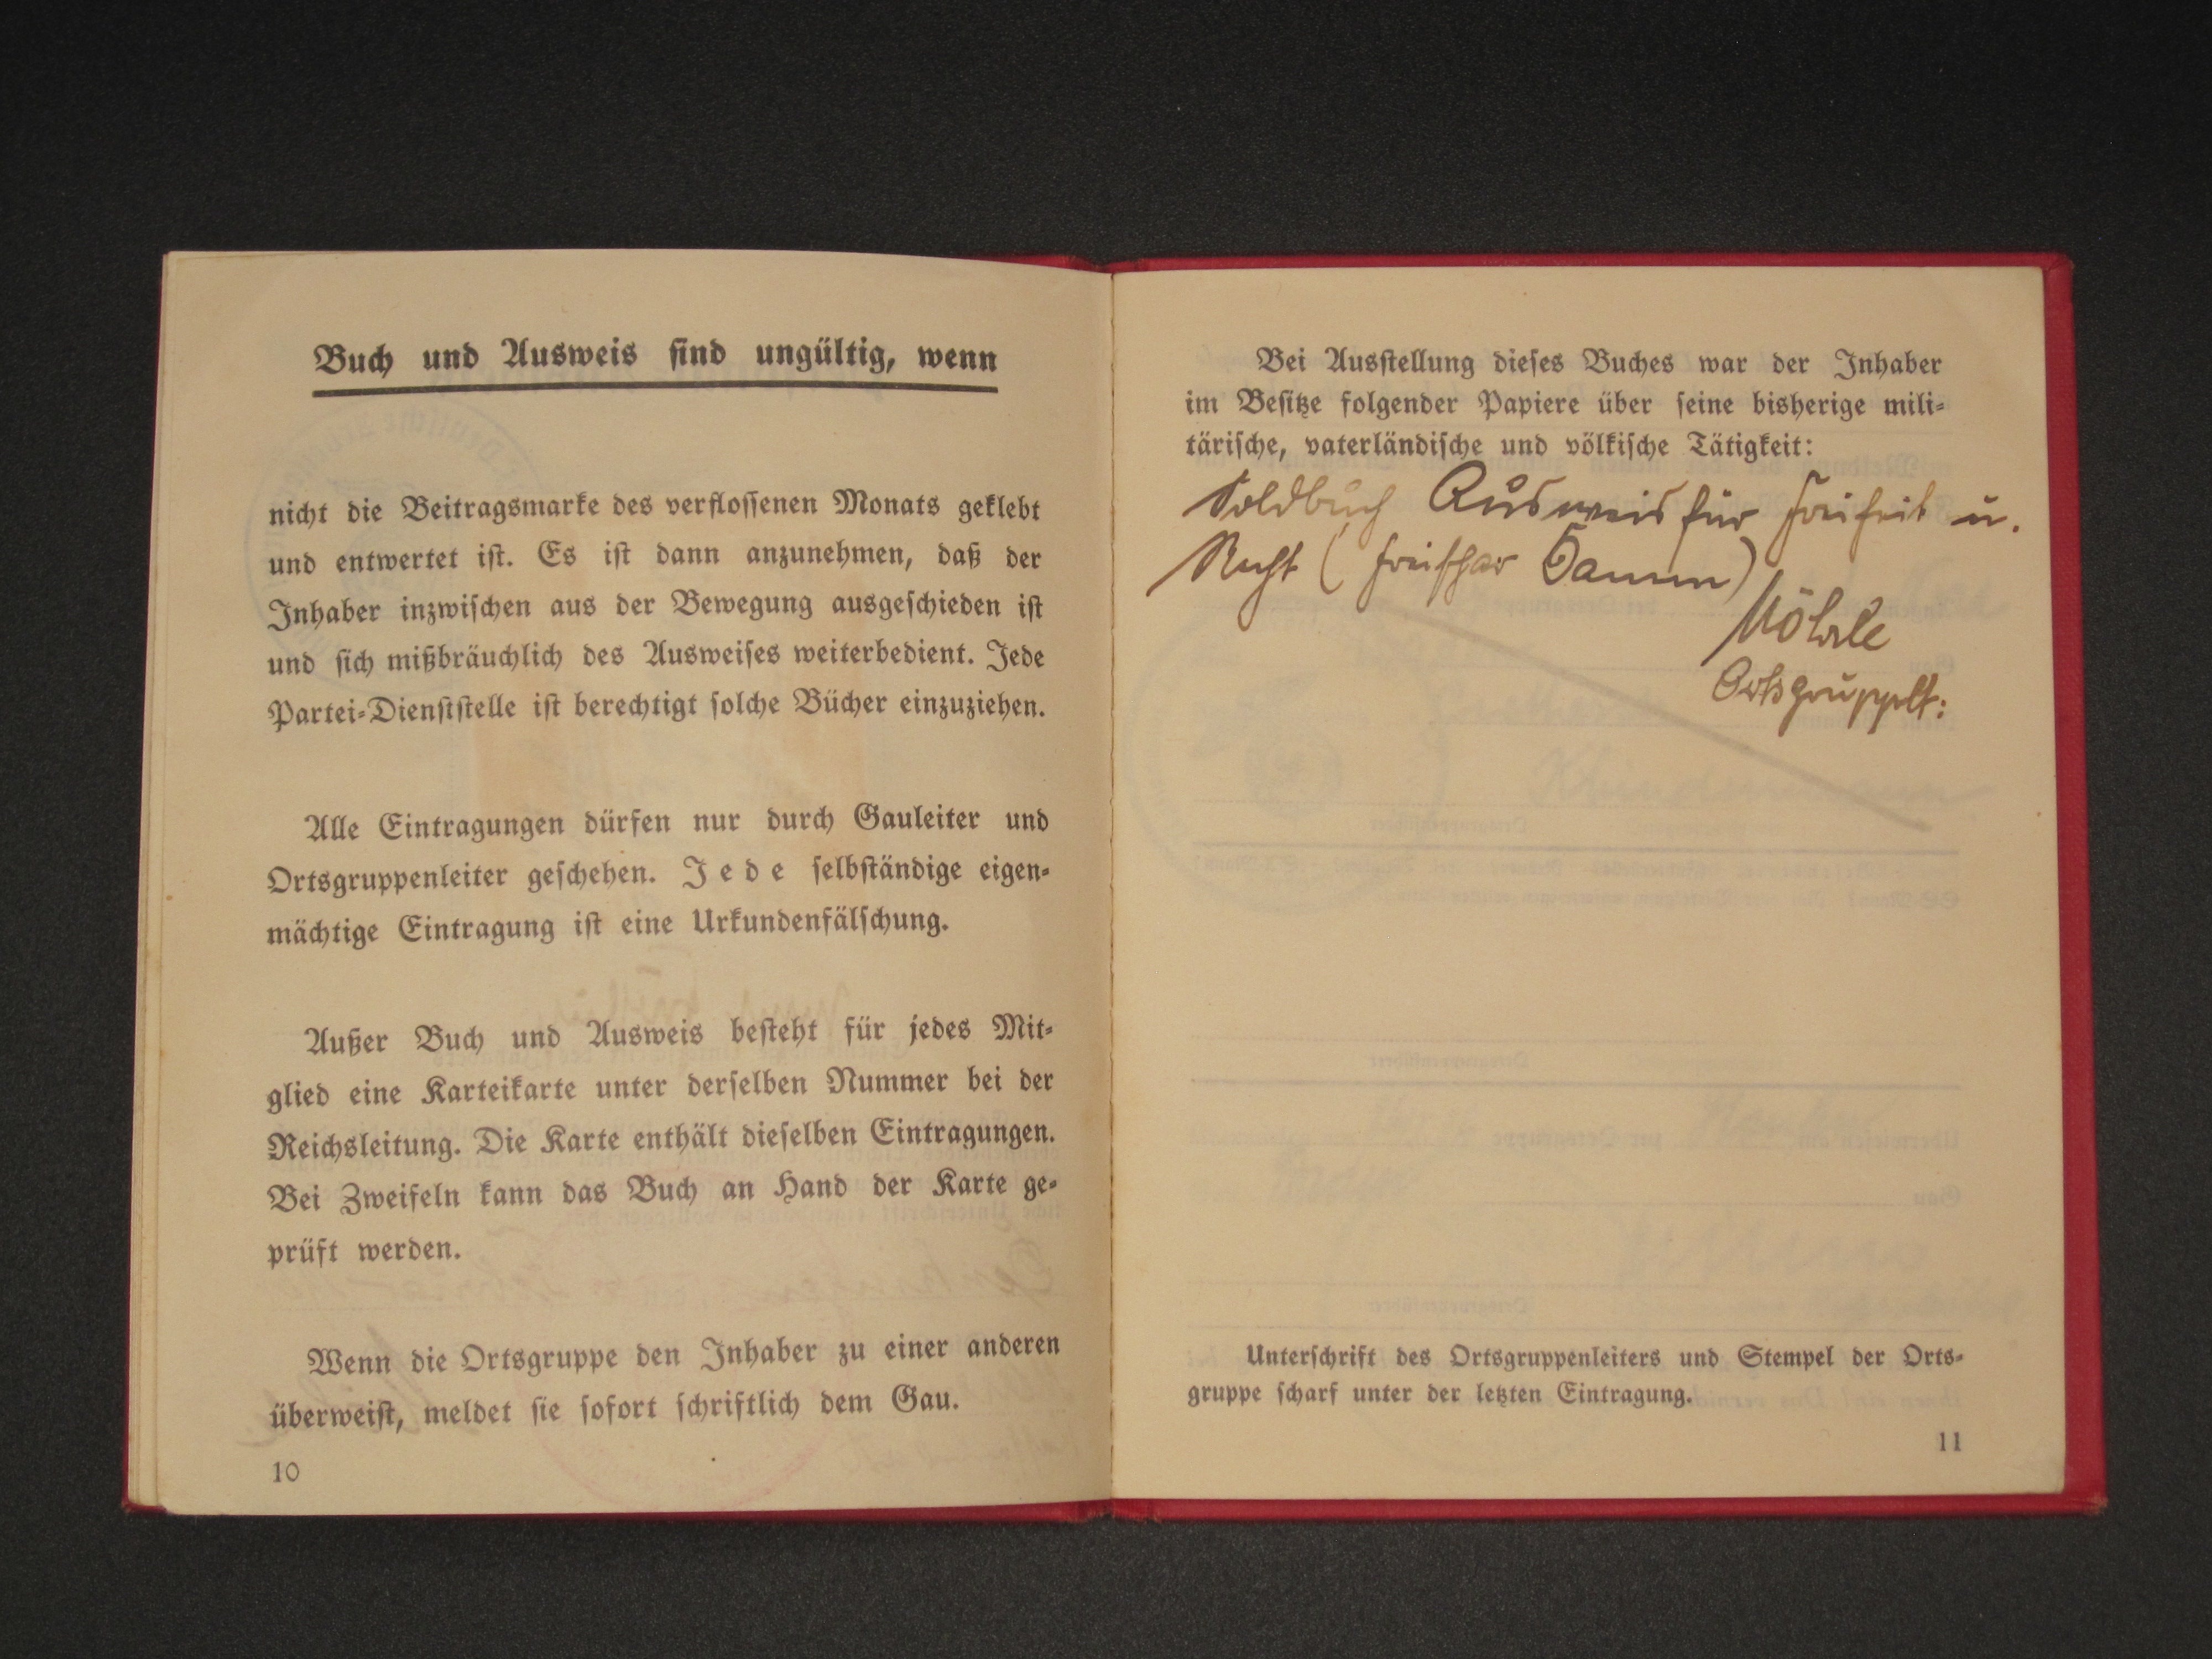 Buch und Ausweis sind ungültig, wenn
nicht die Beitragsmarke des verflossenen Monats geklebt
und entwertet ist. Es ist dann anzunehmen, daß der
Inhaber inzwischen aus der Bewegung ausgeschieden ist
und sich mißbräuchlich des Ausweises weiterbedient. Jede
Partei-Dienststelle ist berechtigt solche Bücher einzuziehen.
Alle Eintragungen dürfen nur durch Gauleiter und
Ortsgruppenleiter geschehen. Jede selbständige eigen-
mächtige Eintragung ist eine Urkundenfälschung.
Außer Buch und Ausweis besteht für jedes Mit-
glied eine Karteikarte unter derselben Nummer bei der
Reichsleitung. Die Karte enthält dieselben Eintragungen.
Bei Zweifeln kann das Buch an Hand der Karte ge-
prüft werden.
Wenn die Ortsgruppe den Inhaber zu einer anderen
überweist, meldet sie sofort schriftlich dem Gau.
10
Bei Ausstellung dieses Buches war der Inhaber
im Besitze folgender Papiere über seine bisherige mili-
tärische, vaterländische und völkische Tätigkeit:
Soldbuch Ausweis für Freiheit u.
Recht (Freischar Damm)
Möhrle
Ortsgruppltr:
Unterschrift des Ortsgruppenleiters und Stempel der Orts-
gruppe scharf unter der letzten Eintragung.
11